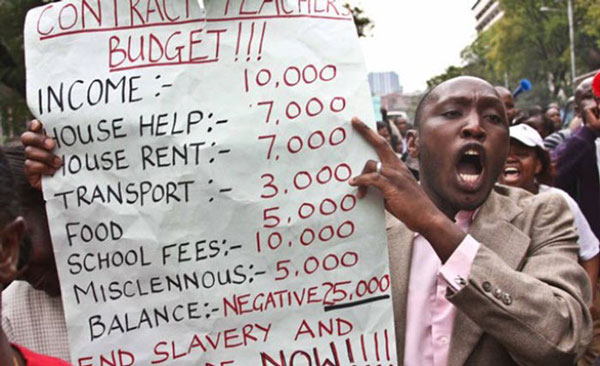 CONTRACT TEACHERS
BUDGET!!!
INCOME :- 10,000
HOUSE HELP:- 7,000
HOUSE RENT:- 7,000
TRANSPORT :- 3,000
FOOD 5,000
SCHOOL FEES:- 10,000
MISCLENNOUS:- 5,000
BALANCE:- NEGATIVE 25,000
END SLAVERY AND
NOW!!!!